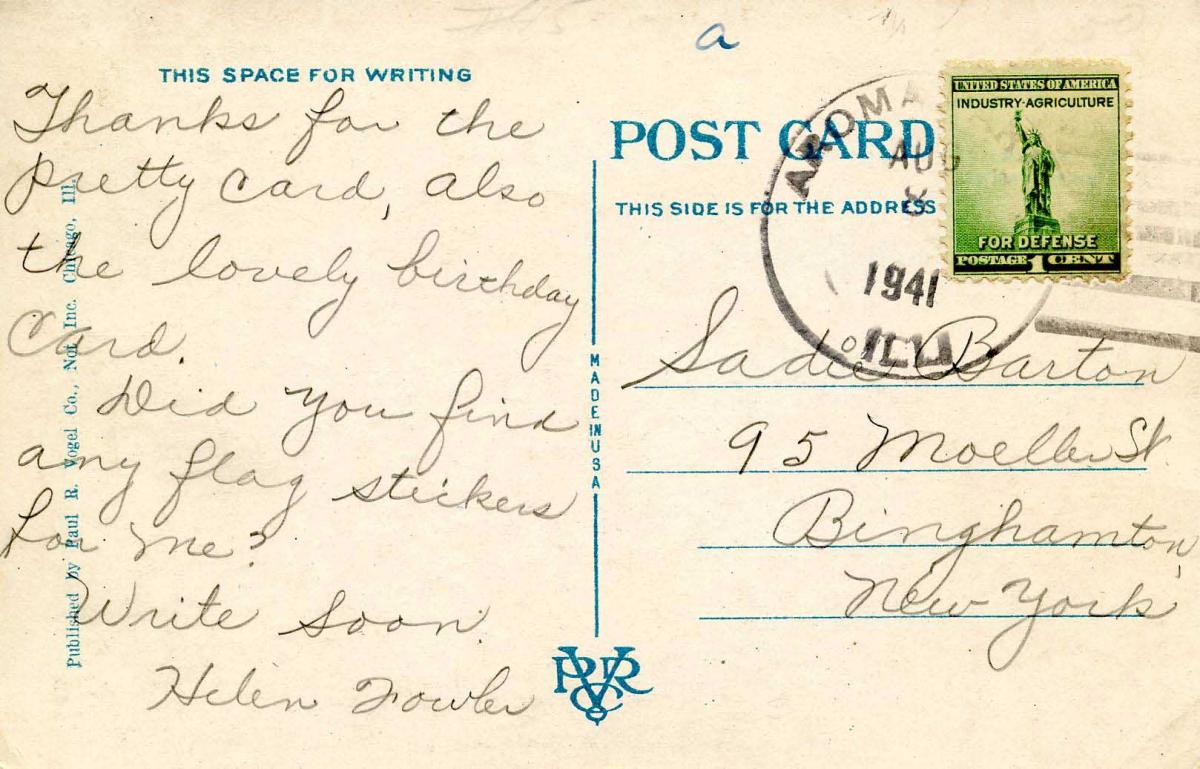 THIS SPACE FOR WRITING
Thanks for the
pretty card, also
the lovely birthday
card.
Did you find
any flag stickers
for me?
Write soon.
Helen Fowler
Published by Paul R. Vogel Co., Not Inc. Chicago, Ill.
MADE IN USA
a
POST CARD
THIS SIDE IS FOR THE ADDRESS
AROMA
AUG
8
1941
ILL
UNITED STATES OF AMERICA
INDUSTRY·AGRICULTURE
FOR DEFENSE
POSTAGE 1 CENT
Sadie Barton
95 Moeller St.
Binghamton,
New York